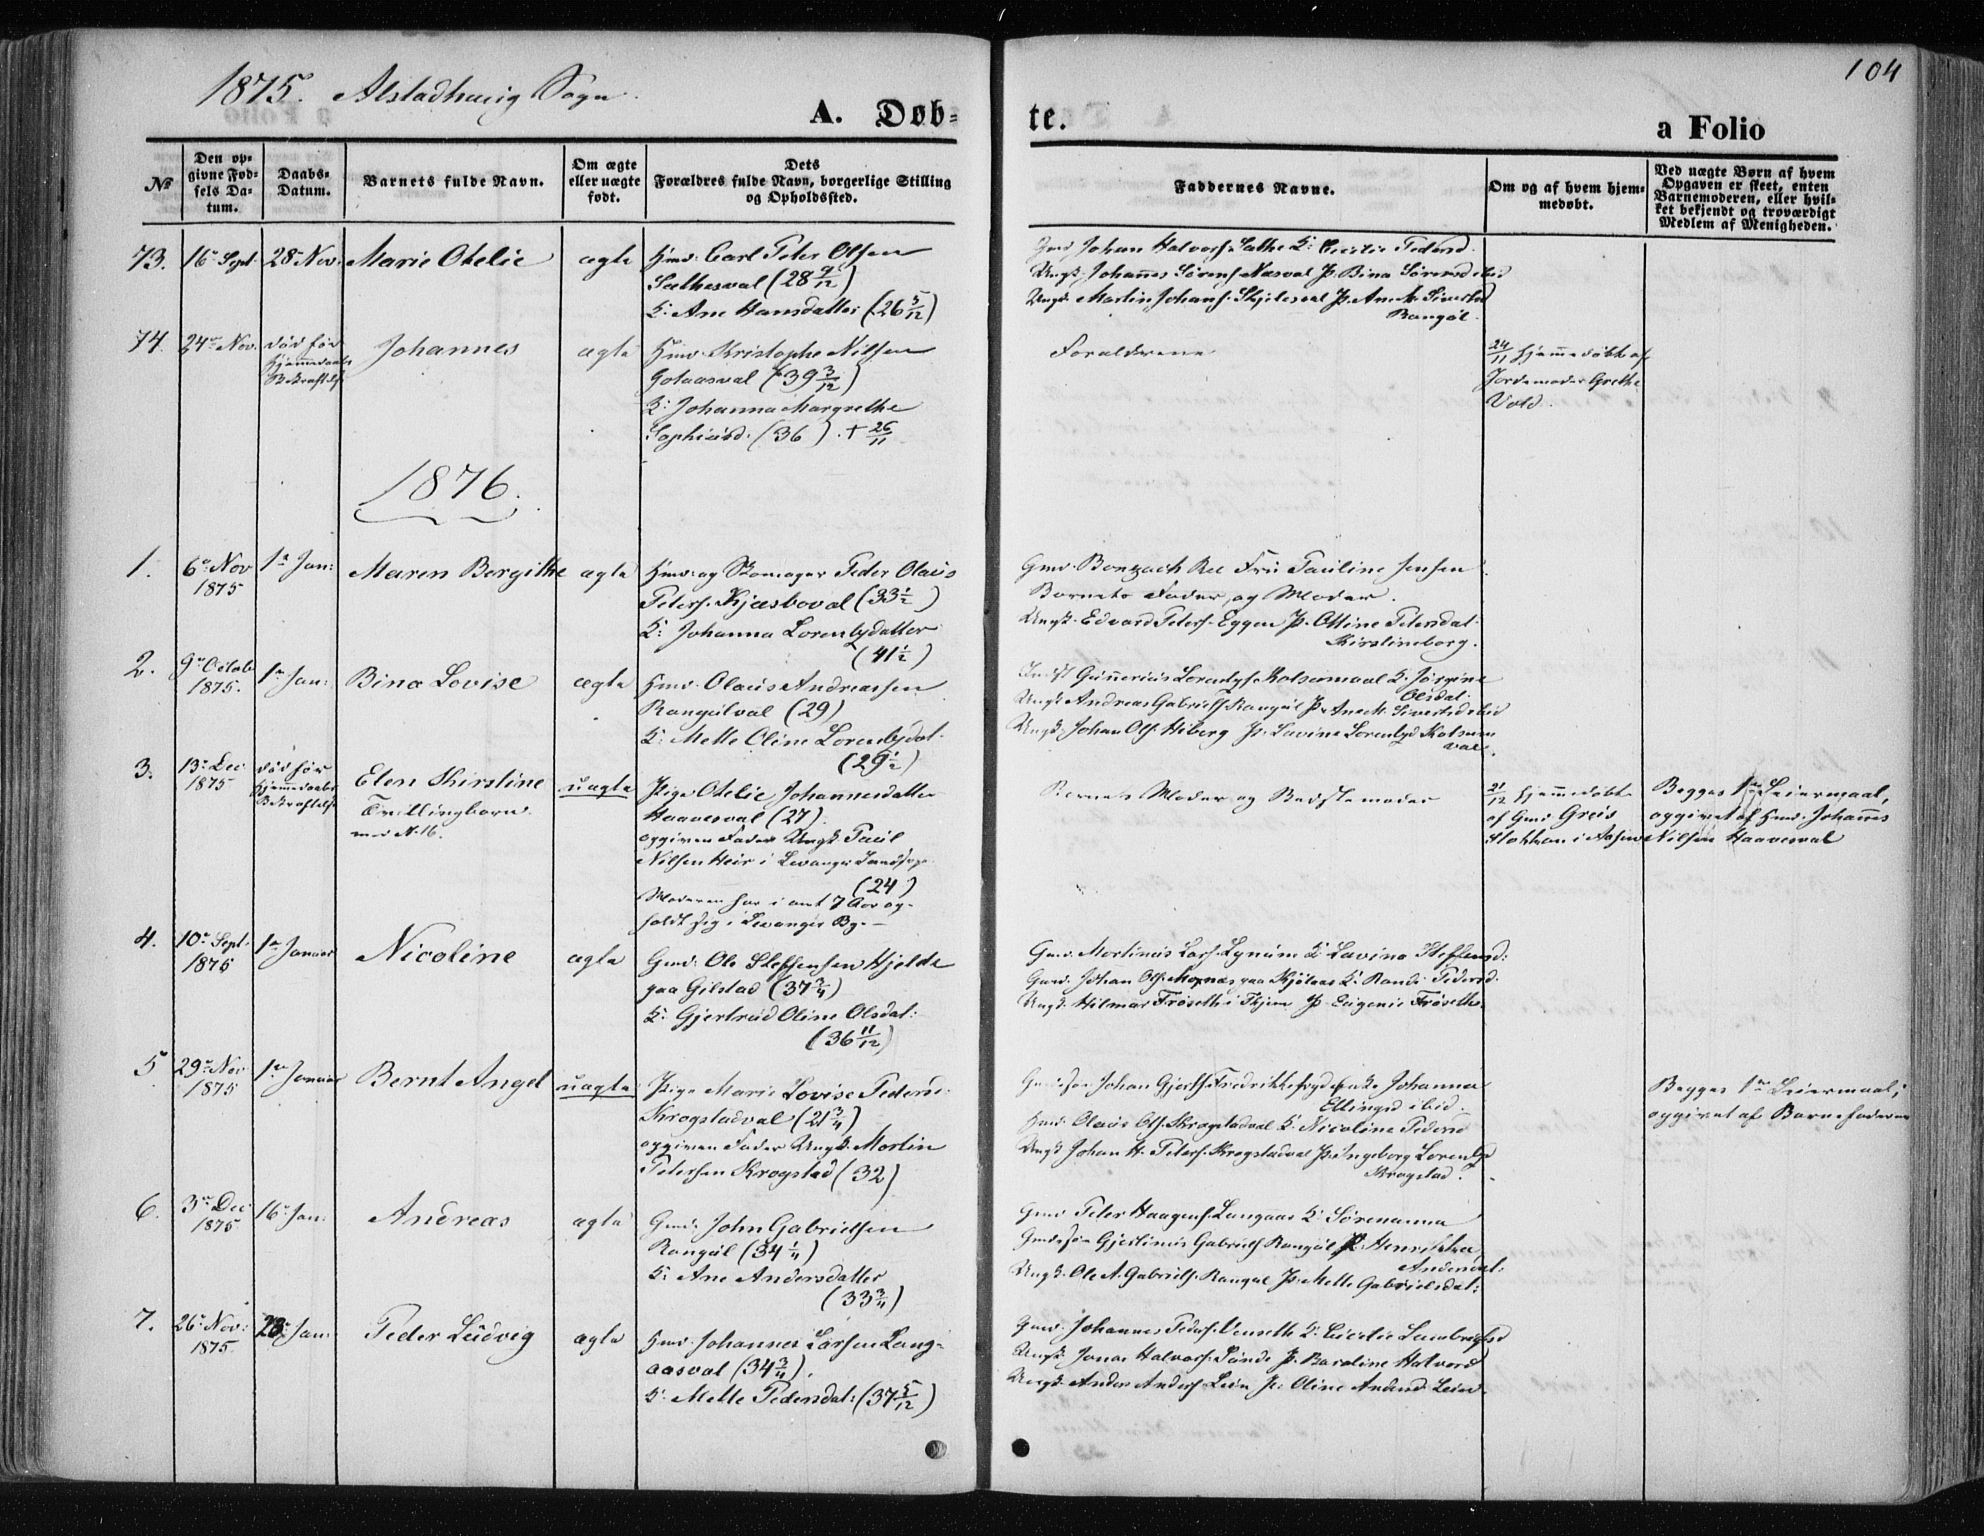 1875. Alstadhaug Sogn.
104
A. Døb=
te.
a Folio
No
Den op=
givne Fød=
sels Da=
tum.
Daabs=
Datum.
Barnets fulde Navn.
Om ægte
eller uægte
født.
Dets
Forældres fulde Navn, borgerlige Stilling
og Opholdssted.
Faddernes Navne.
Om og af hvem hjem=
medøbt.
Ved uægte Børn af hvem
Opgaven er skeet, enten
Barnemoderen, eller hvil=
ket bekjendt og troværdigt
Medlem af Menigheden.
73. 16 Sept. 28 Nov. Marie Otelie ægte
Hmd. Carl Peter Olsen
Sæthesval (28 9/12)
K: Ane Hansdatter (26 5/12)
Gmd. Johan Halvors. Sæthe K: Cecilie Pedersd.
Ungk. Johannes Sørens. Næsval P. Bina Sørensd. ibid
Ungk. Martin Johans. Skjelesval P. Ane M. Sivertsd
Rangøl.
74. 24 Nov. død før
Hjemmedaabs
Bekræftelse
Johannes ægte
Hmd. Kristophe Nilsen
Golaasval (39 3/12)
K: Johanna Margrethe
Sophiasd. (36) . + 26/11
Forældrene
24/11 hjemmedøbt af
Jordemoder Grethe
Vold.
1876.
1. 6 Nov
1875
1 Jan: Maren Bergithe ægte
Hmd. og Skomager Peder Olaus
Peters. Kjæsboval (33 1/2)
K: Johanna Lorentzdatter
(41 1/2)
Gmd. Fru Pauline Jensen
Barnets Fader og Moder.
Ungk. Edvard Peters. Eggen P. Otline Petersdat.
Kirstineborg.
2. 9 Octob
1875.
1 Jan: Bina Lovise ægte
Hmd. Olaus Andreassen
Rangølval (29)
K: Mette Oline Lorentzdat.
(29 1/2)
Indst Gunnerius Lorentzs. Kolsumval K. Jørgine
Olsdat.
Ungk Andreas Gabriels. Rangøl P. Ane M. Sivertsd ibid
Ungk. Johan Ols. Hiberg P. Lavina Lorentzd Kolsum
val.
3. 13 Dec
1875
død før
Hjemmedaabs
Bekræftelse
Elen Kirstine
Tvillingbarn
med N. 16.
uægte
Pige Otelie Johannesdatter
Haavesval (27)
opgiven Fader Ungk. Paul
Nilsen Heir i Levanger Landsogn
(24)
Moderen har i omt 7 Aar op-
holdt sig i Levanger By.
Barnets Moder og Bedstemoder
21/12 hjemmedøbt
af Gmd. Greis
Stokkan i Aasen
Begges 1ste Leiermaal,
opgivet af Hmd. Johannes
Nilsen Haavesval
4. 10 Sept.
1875
1 Januar Nicoline ægte
Gmd. Ole Steffensen Hjelde
paa Gilstad (37 3/4)
K: Gjertrud Oline Olsdat:
(36 11/12)
Gmd. Martinus Lars. Lynum K. Lavina Steffensd:
Gmd. Johan Ols. Mognæs paa Skjølaas K. Randi Pedersd.
Ungk. Hilmar Frøseth P. Eugenie Frøseth
5 29 Nov
1875
1 Januar Bernt Angel uægte
Pige Marie Lovise Pedersd.
Krogstadval (21 3/4)
opgiven Fader Ungk. Martin
Petersen Krogstad (32)
Gmdssøn Johan Gjerts. Fredrikkefryd Enke Johanna
Ellingsd ibid.
Hmd. Olaus Ols. Krogstadval K. Nicoline Pedersd
Ungk Johan H. Peters. Krogstadval P. Ingeborg Lorentzd
Krogstad.
Begges 1ste Leiermaal;
opgivet af Barnefaderen
6. 3 Dec
1875
16 Jan. Andreas ægte
Gmd. John Gabrielsen
Rangøl (34 1/4)
K. Ane Andersdatter
(33 3/4)
Gmd. Peter Haagens. Langaas K. Sørenanna
Gmdssøn Gjestinus Gabriels Rangøl P. Henrikka
Andersdat:
Ungk. Ole A. Gabriels. Rangøl P. Mette Gabrielsdat:
7. 26 Nov:
1875.
23 Jan: Peder Ludvig ægte
Hmd. Johannes Larsen Lang-
aasval (34 3/4).
K. Mette Pedersdat: (37 5/12)
Gmd. Johannes Peders. Venseth K. Cicilie Lambregtsd
Ungk. Jonas Halvors. Sunde P. Karoline Halvorsd
Ungk. Anders Anders. Lein P. Oline Andersd. Lein.